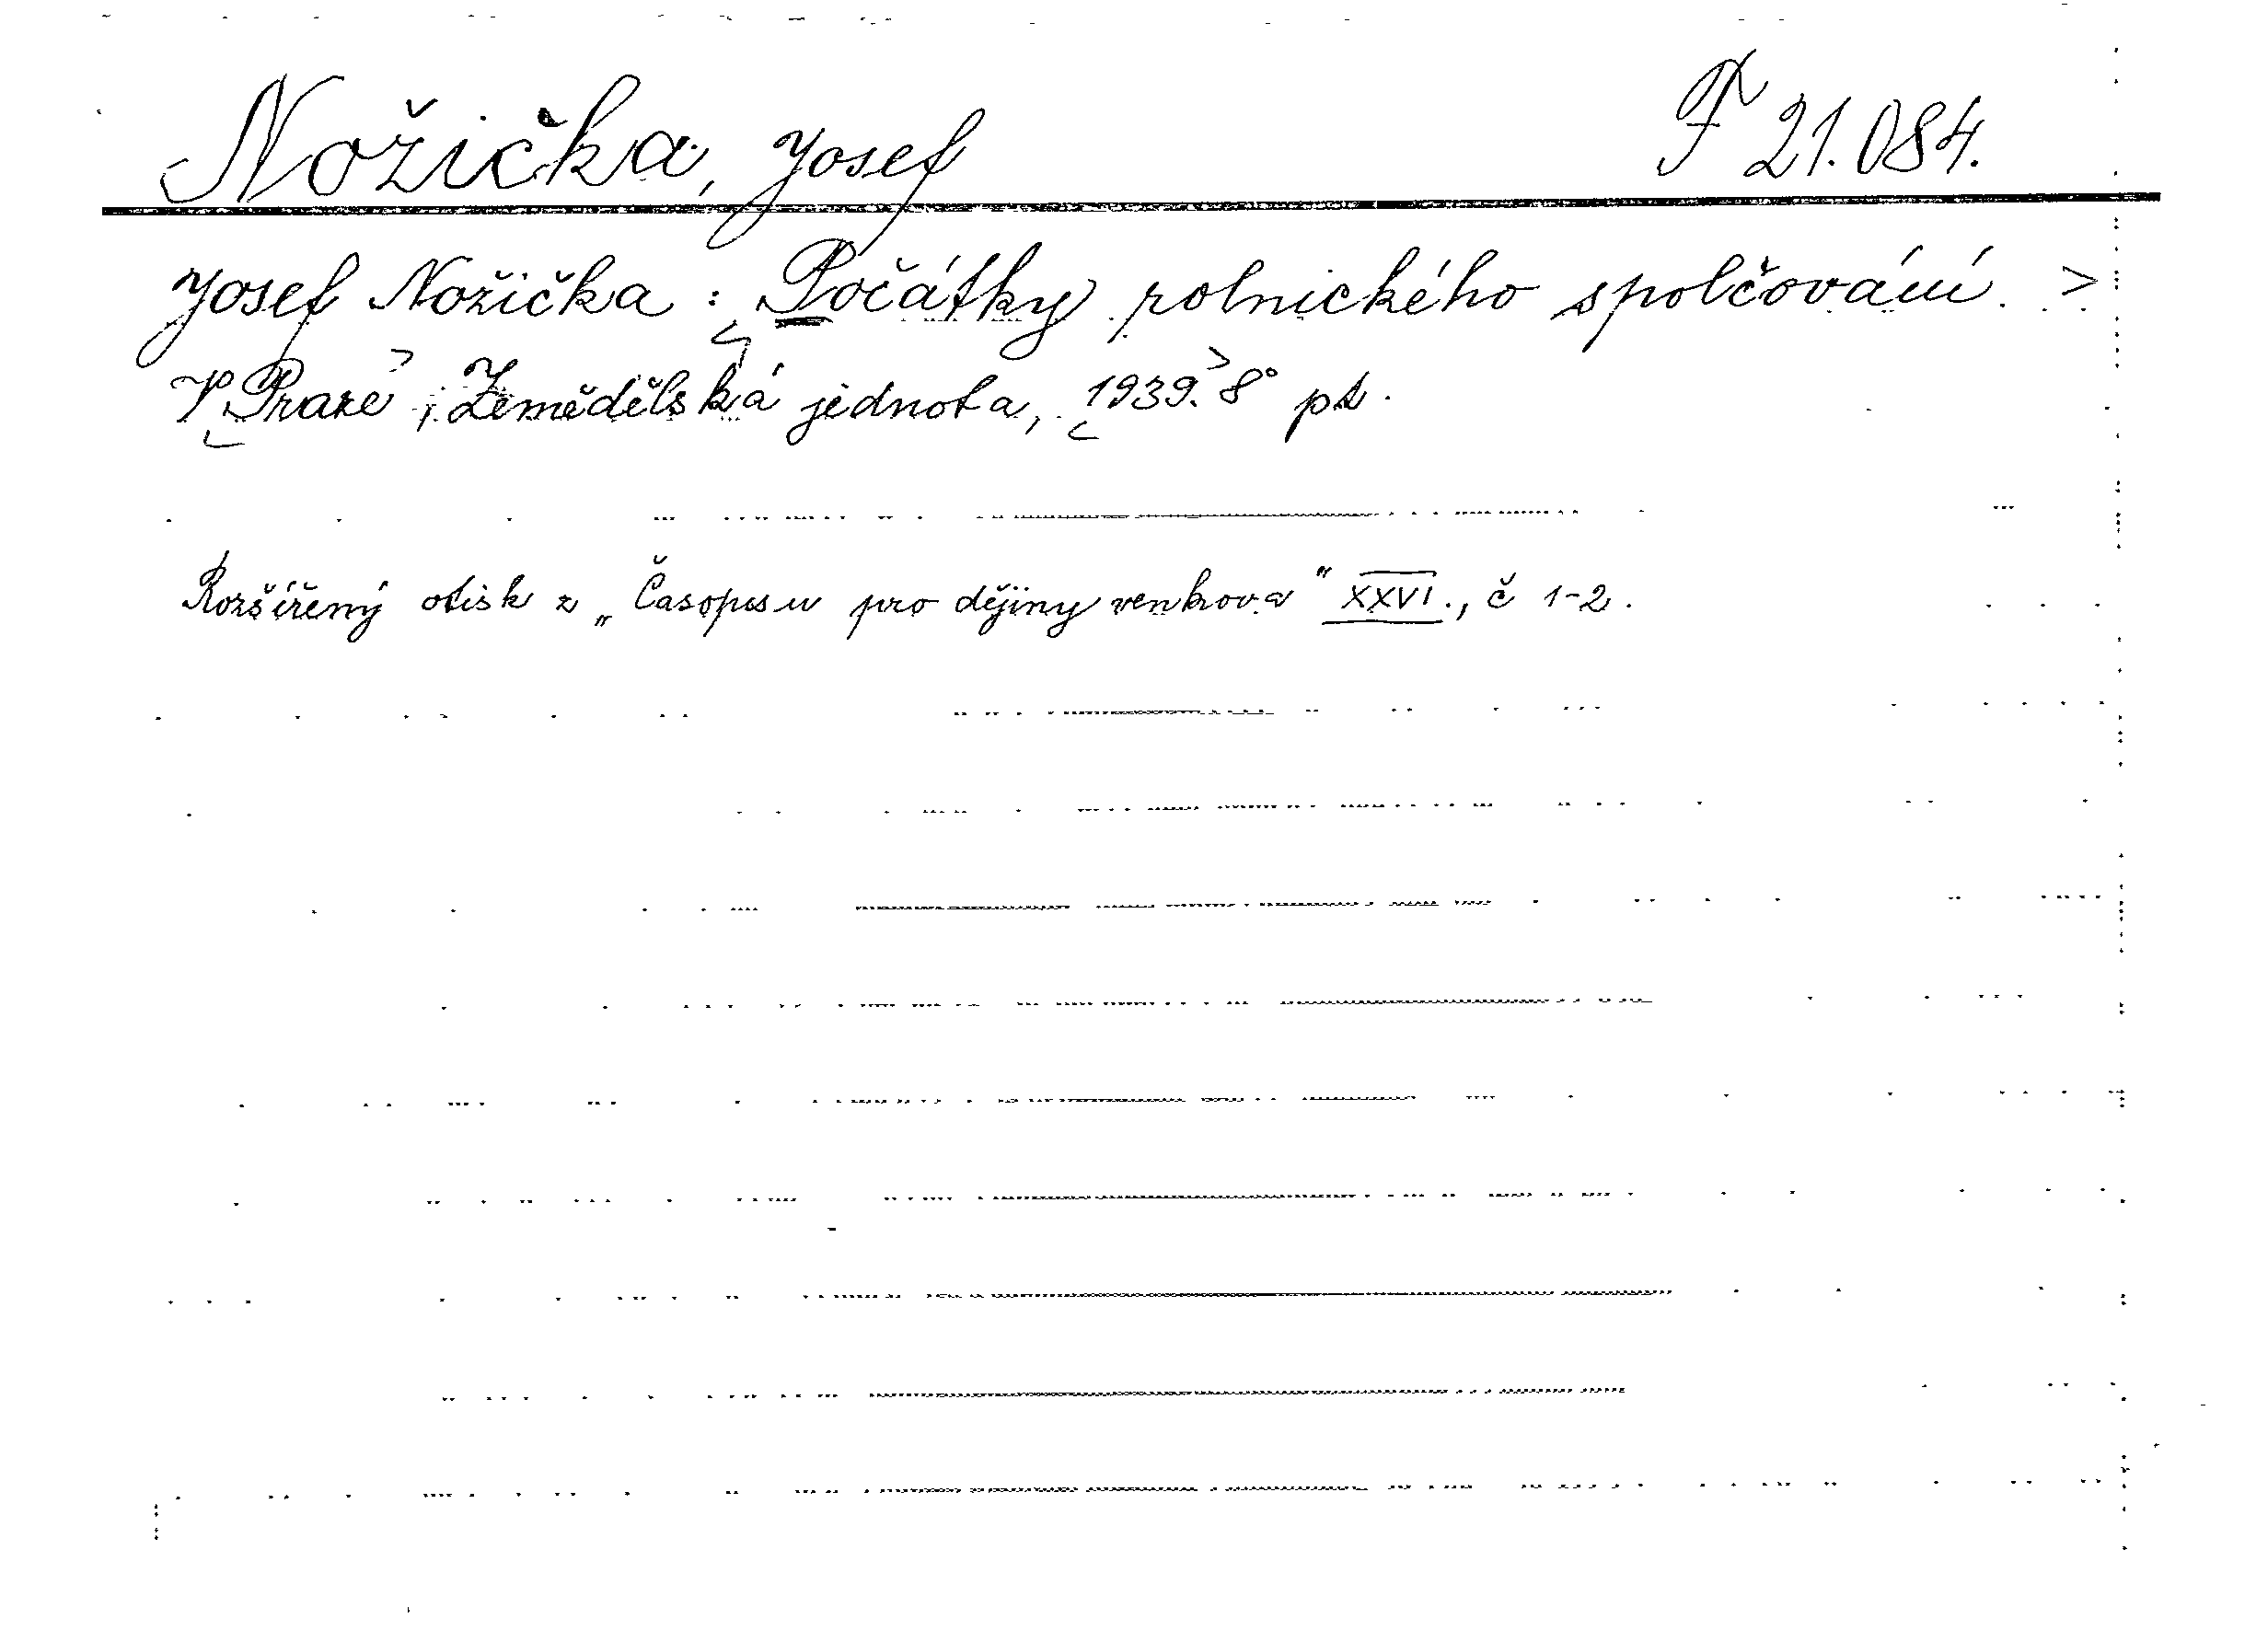 Nožička, Josef F 21.084.
Josef Nožička: Počátky rolnického spolčování. >
V Praze, Zemědělská jednota, 1939. 8° pt.
Rozšířený otisk z „Časopisu pro dějiny venkova" XXVI., č 1-2.